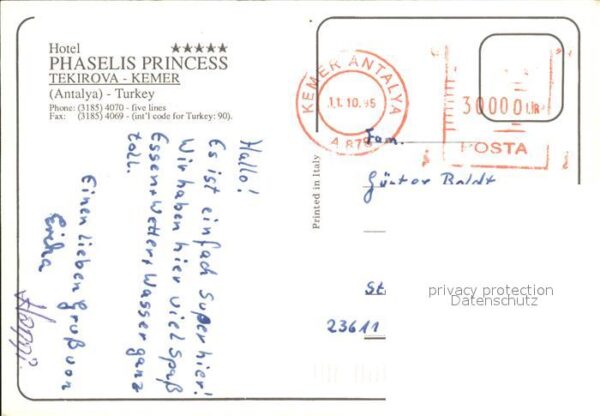 Hotel ★★★★★
PHASELIS PRINCESS
TEKIROVA - KEMER
(Antalya) - Turkey
Phone: (3185) 4070 - five lines
Fax: (3185) 4069 - (int'l code for Turkey: 90).
Hallo!
Es ist einfach Super hier!
Wir haben hier viel Spaß
Essen + Wetter + Wasser ganz
toll.
Einen lieben Gruß von
Erika
Printed in Italy
KEMER ANTALYA
11.10.95
A 879
30000 LIR
POSTA
Fam.
Günter Boldt
St
23611
privacy protection
Datenschutz